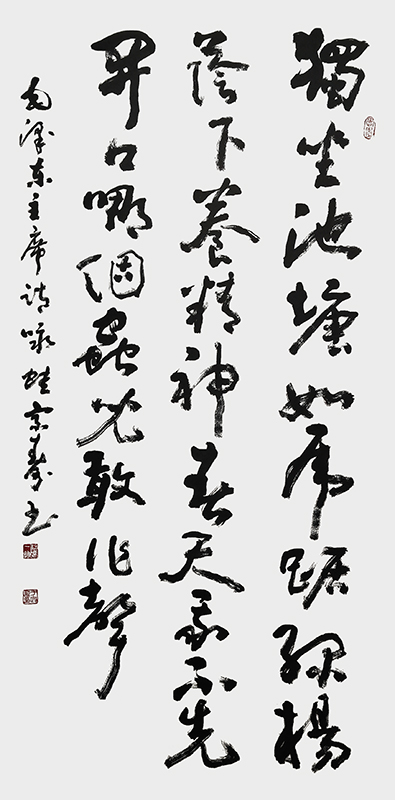 獨坐池塘如虎踞綠楊
蔭下養精神春天我不先
開口哪個蟲兒敢作聲
毛澤東主席詩咏蛙